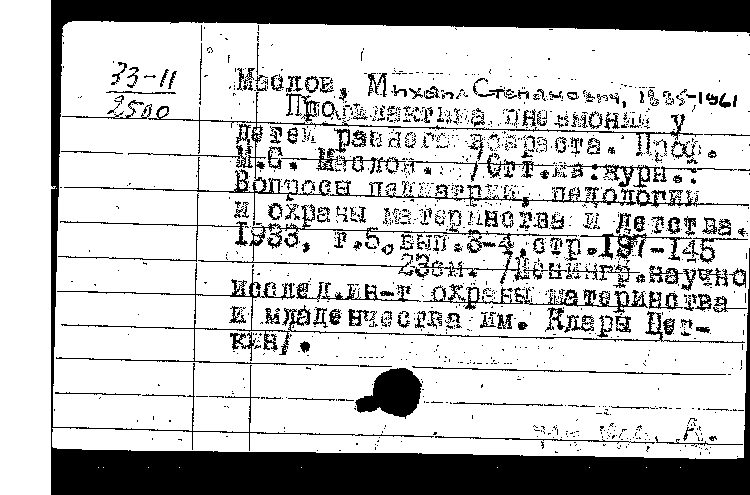 33-11
2500
Маслов, Михаил Степанович, 1885-1961
Профилактика пневмонии у
детей раннего возраста. Проф.
М.С. Маслов. /Отт.из:журн.:
Вопросы педиатрии, педологии
и охраны материнства и детства.
1933, т.5, вып.3-4, стр.137-145
23см. /Ленингр.научно
исслед.ин-т охраны материнства
и младенчества им. Клары Цет-
кин/.